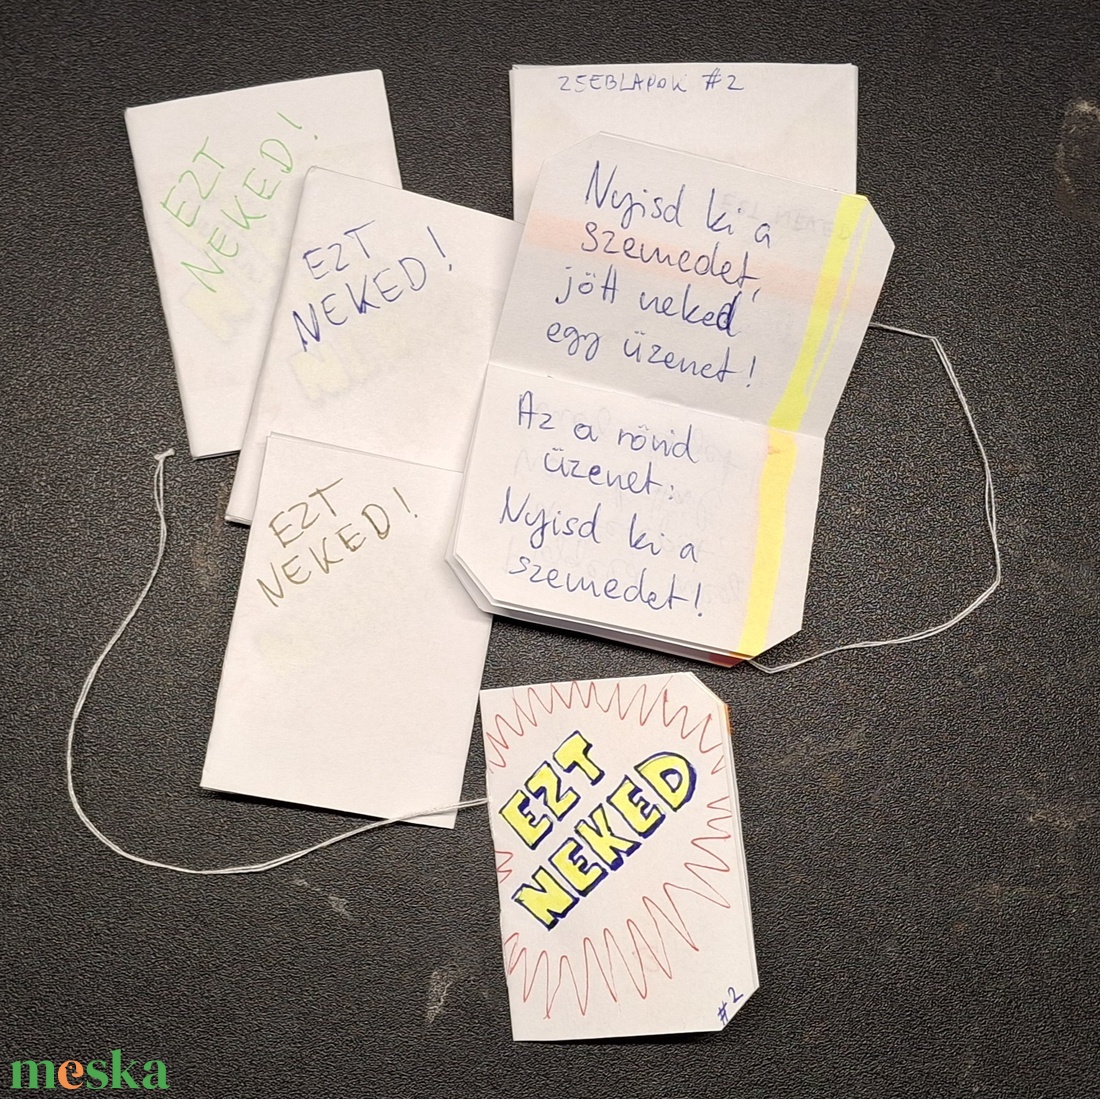 ZSEBLAPOK #2
EZT
NEKED!
EZT
NEKED!
Nyisd ki a
szemedet,
jött neked
egy üzenet!
Az a rövid
üzenet:
Nyisd ki a
szemedet!
EZT
NEKED!
EZT
NEKED
#2
meska